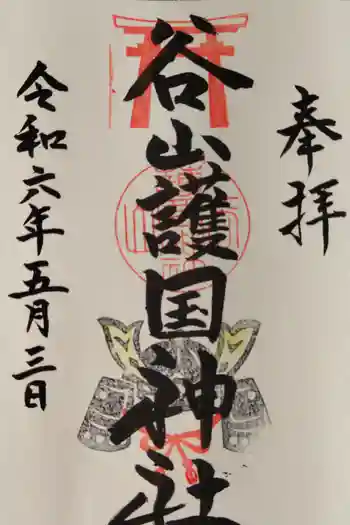 奉拝
谷山護国神社
令和六年五月三日